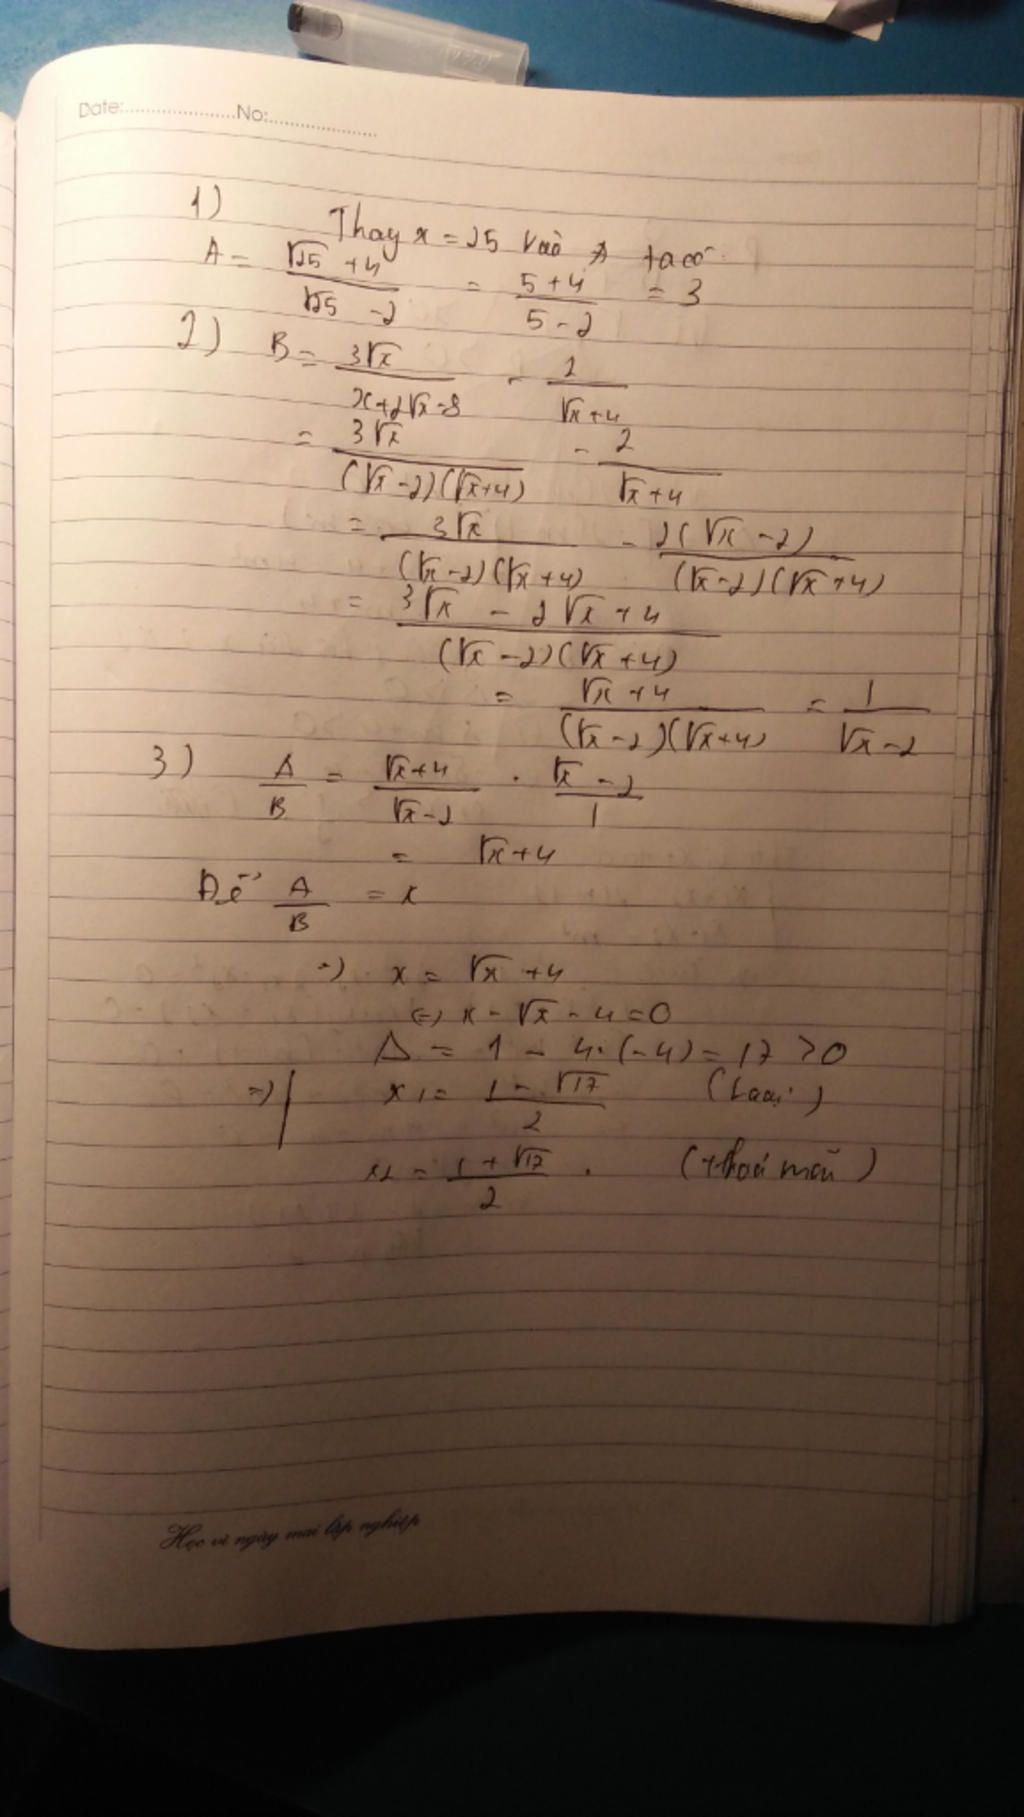 Date:....................No:....................
1) Thay x = 25 vào A ta có
A = (√25 + 4)/(√25 - 2) = (5 + 4)/(5 - 2) = 3
2) B = 3√x/(x + 2√x - 8) - 2/(√x + 4)
= 3√x/((√x - 2)(√x + 4)) - 2/(√x + 4)
= 3√x/((√x - 2)(√x + 4)) - 2(√x - 2)/((√x - 2)(√x + 4))
= (3√x - 2√x + 4)/((√x - 2)(√x + 4))
= (√x + 4)/((√x - 2)(√x + 4)) = 1/(√x - 2)
3) A/B = (√x + 4)/(√x - 2) . (√x - 2)/1
= √x + 4
Để A/B = x
=> x = √x + 4
<=> x - √x - 4 = 0
Δ = 1 - 4.(-4) = 17 > 0
=> | x1 = (1 - √17)/2 (Loại)
x2 = (1 + √17)/2 . (thoả mãn)
Học vì ngày mai lập nghiệp